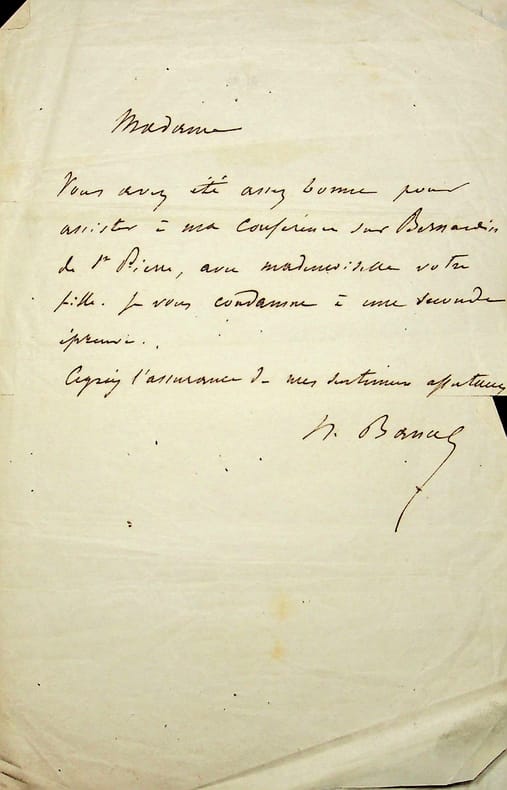 Madame
Vous avez été assez bonne pour
assister à ma Conférence sur Bernardin
de St Pierre, avec mademoiselle votre
fille. Je vous condamne à une seconde
épreuve.
Agréez l'assurance de mes sentimens affectueux